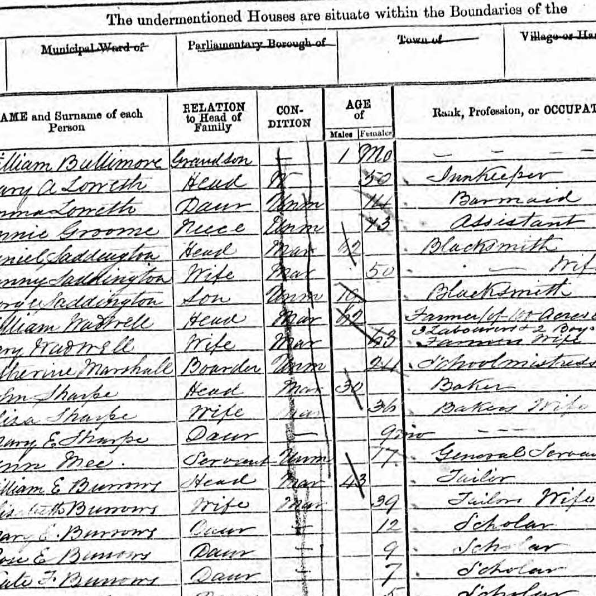 The undermentioned Houses are situate within the Boundaries of the
Municipal Ward of Parliamentary Borough of Town of Village or Ha
AME and Surname of each Person RELATION to Head of Family CON-DITION AGE of Males Females Rank, Profession, or OCCUPAT
illiam Bullimore Grandson — 1 Mo — — —
ary A Loweth Head W 50 Innkeeper
mma Loweth Daur Unm Barmaid
nnie Groome Neece Unm Assistant
niel Saddington Head Mar 62 Blacksmith
nny Saddington Wife Mar 50 — Wife
orge Saddington Son Unm Blacksmith
illiam Head Mar 62 Farmer of Acres
3 Labourers & 2 Boys
ary Wife Mar 63 Farmers Wife
therine Marshall Boarder Unm 24 Schoolmistress
hn Sharpe Head Mar 30 Baker
iza Sharpe Wife Mar 36 Bakers Wife
ary E Sharpe Daur — 9 mo — — —
nn Mee. Servant Unm 17 General Serva
illiam E Burrows Head Mar 43 Tailor
Burrows Wife Mar 39 Tailors Wife
ary E. Burrows Daur — 12 Scholar
ose E Burrows Daur — 9 Scholar
ate F Burrows Daur — 7 Scholar
5 Scholar